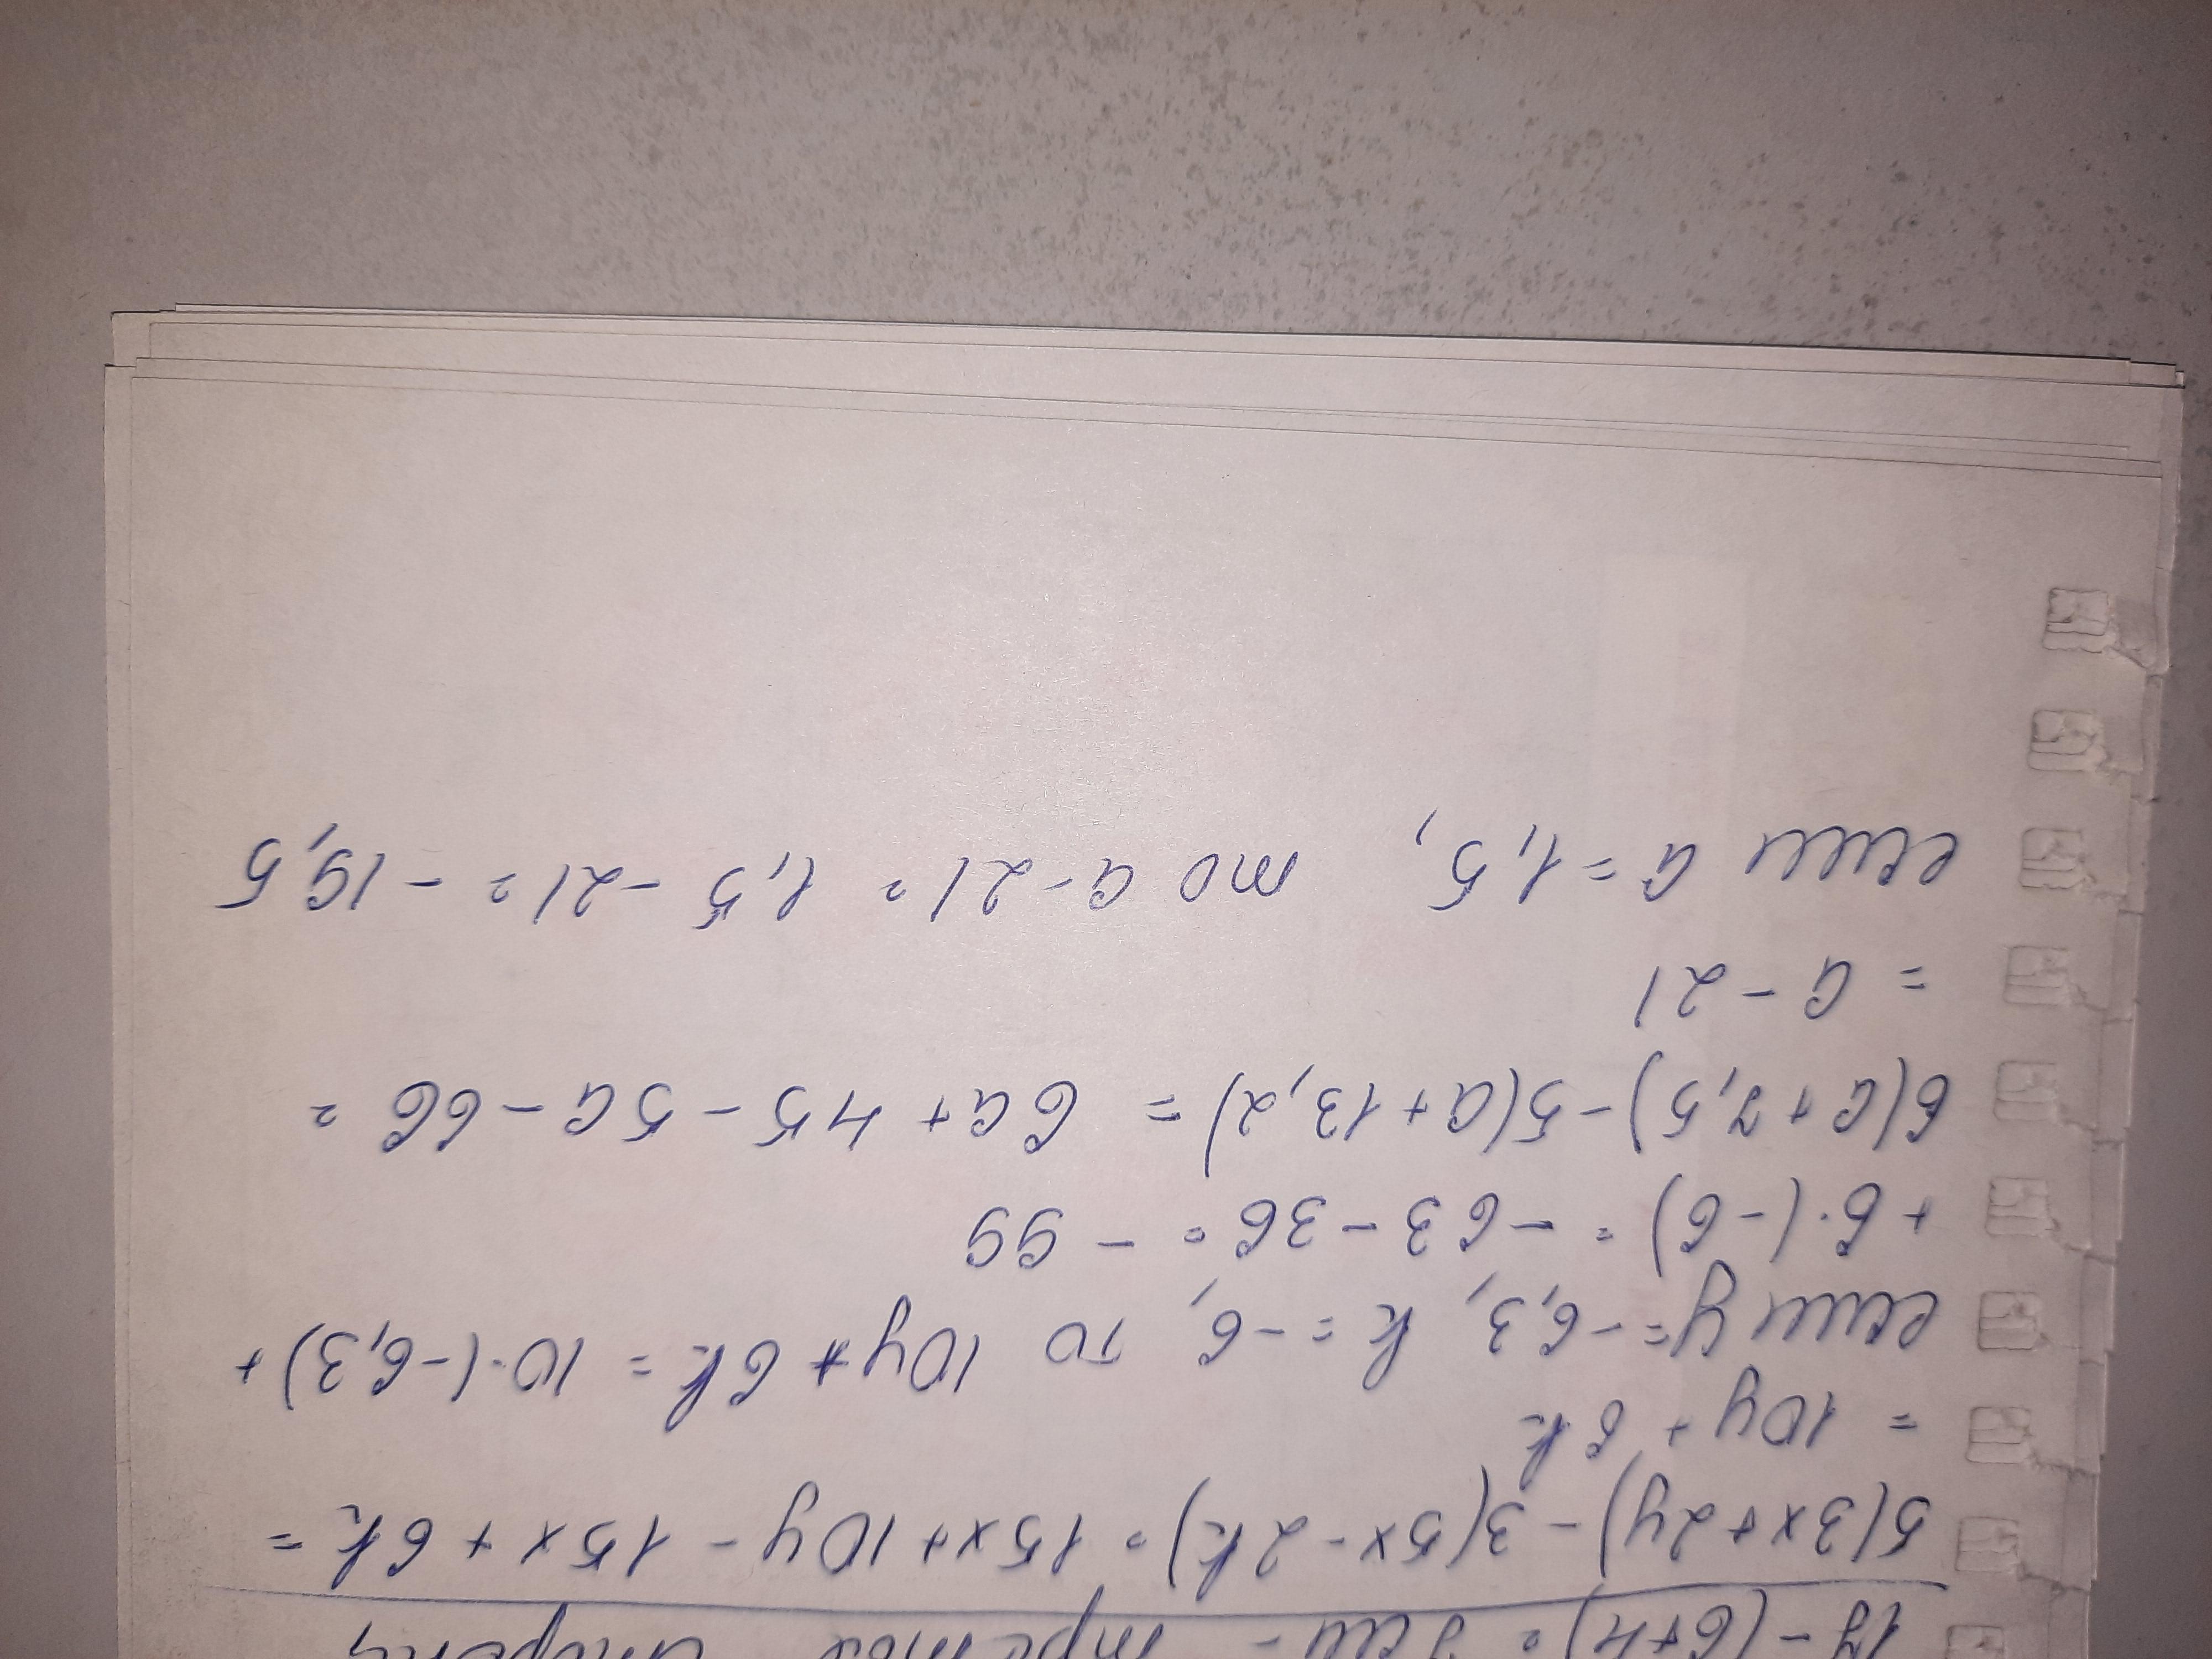 17-(6+4)=7см - третья сторона
5(3x+2y)-3(5x-2k)=15x+10y-15x+6k=
=10y+6k
если y=-6,3, k=-6, то 10y+6k=10·(-6,3)+
+6·(-6)=-63-36=-99
6(a+7,5)-5(a+13,2)=6a+45-5a-66=
=a-21
если a=1,5, то a-21=1,5-21=-19,5